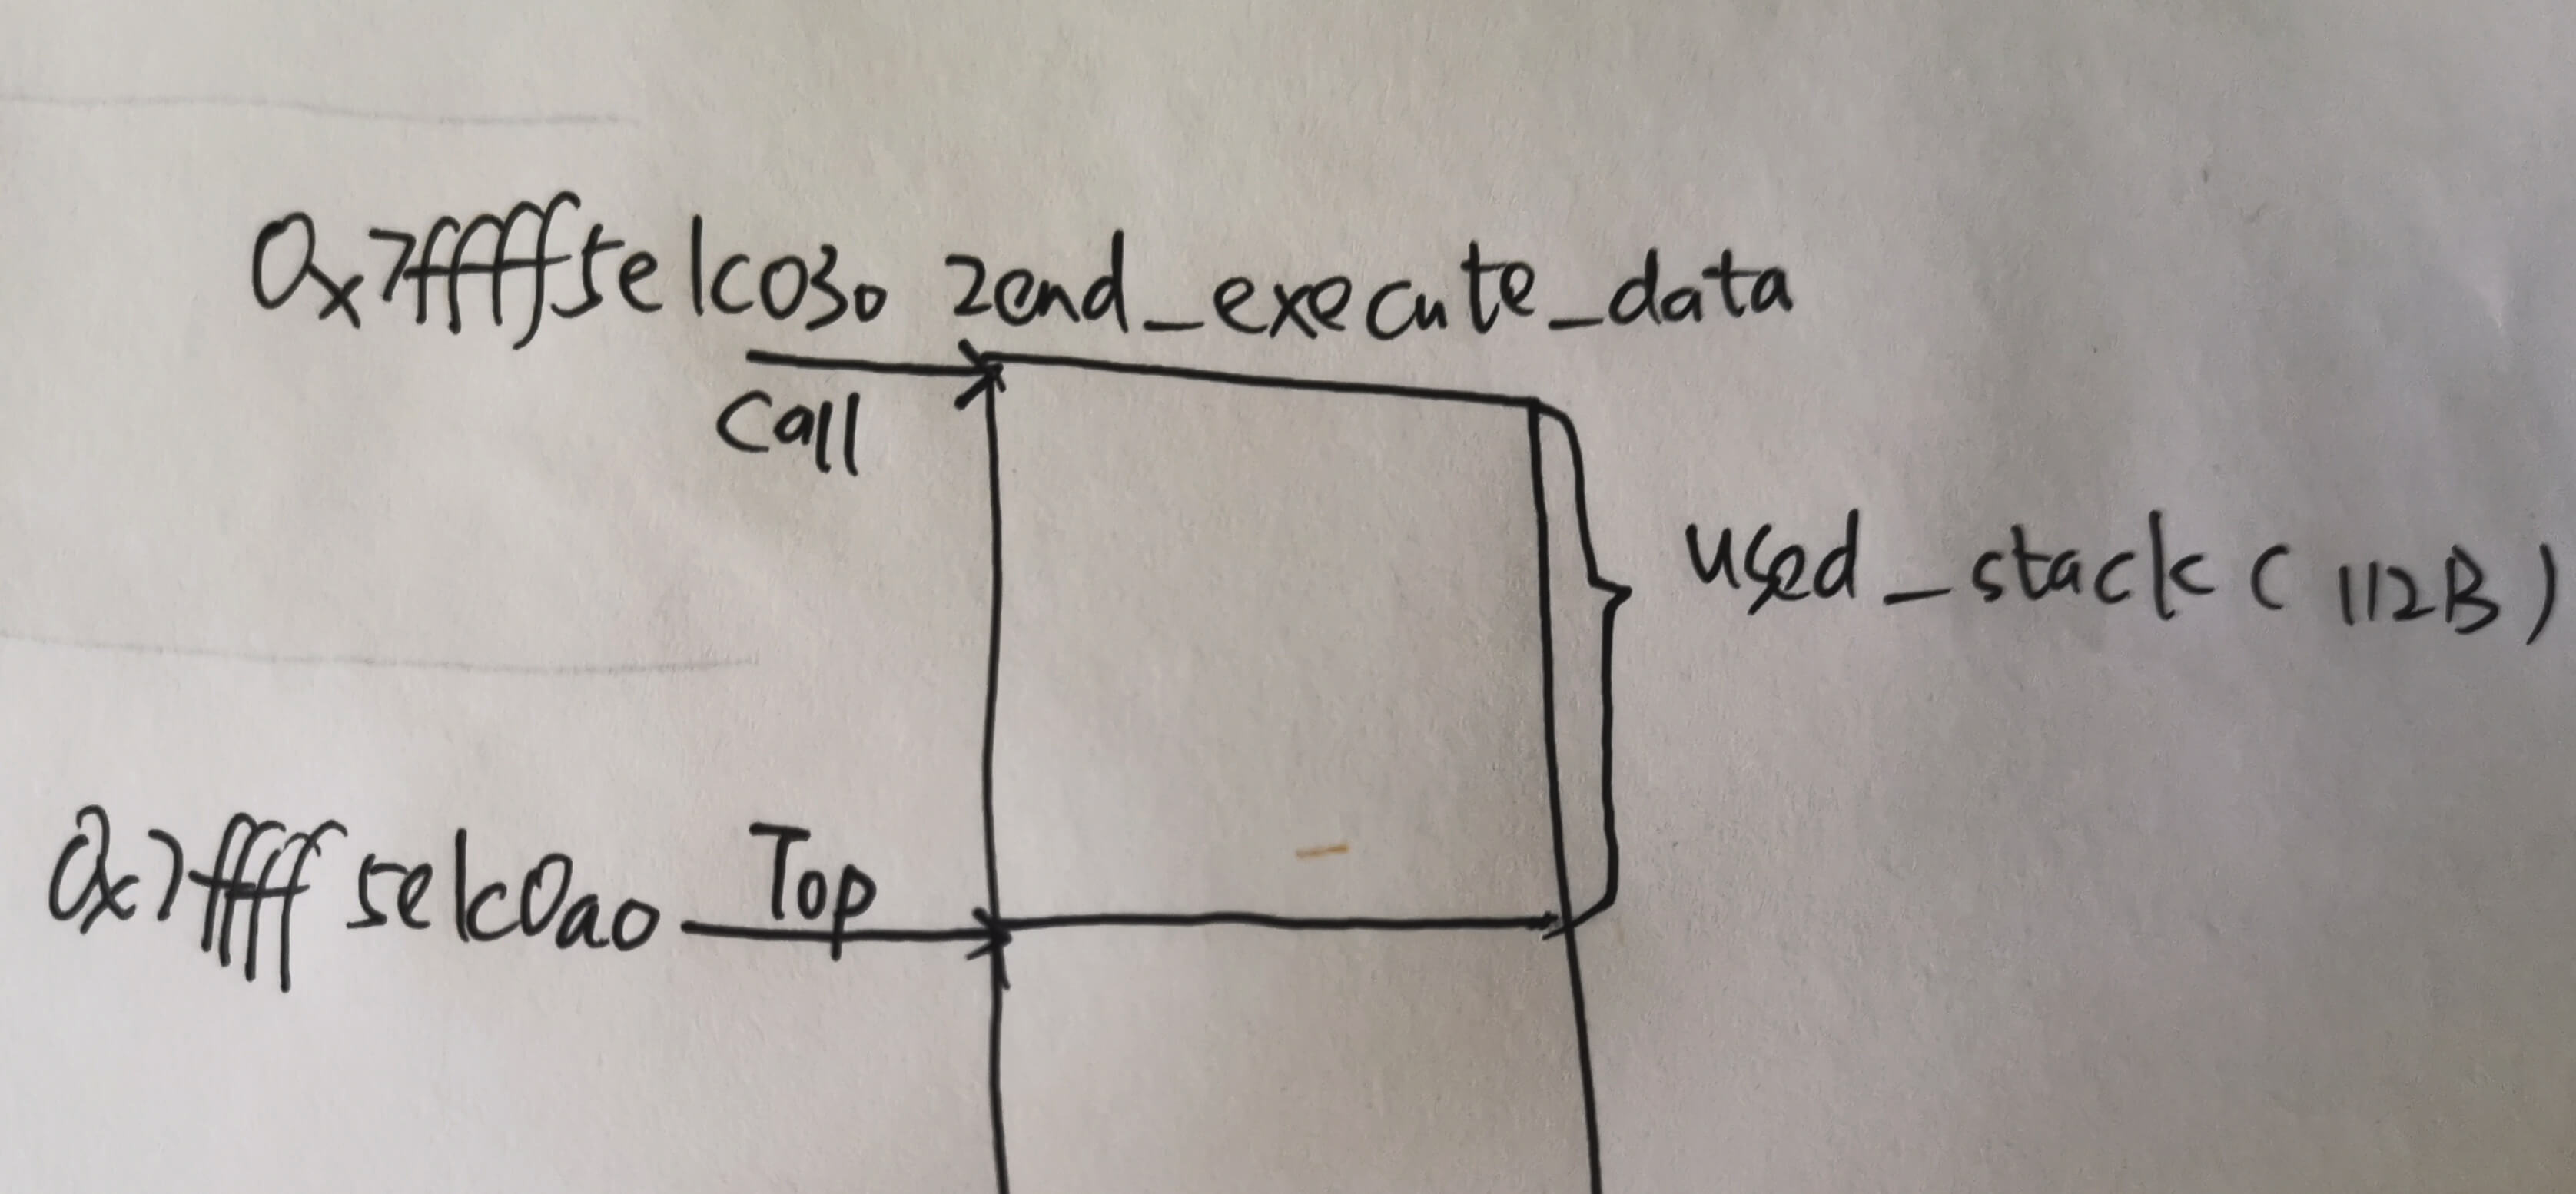 0x7ffff5e1c030 zend_execute_data
call
used_stack ( 112B )
0x7ffff5e1c0a0 Top